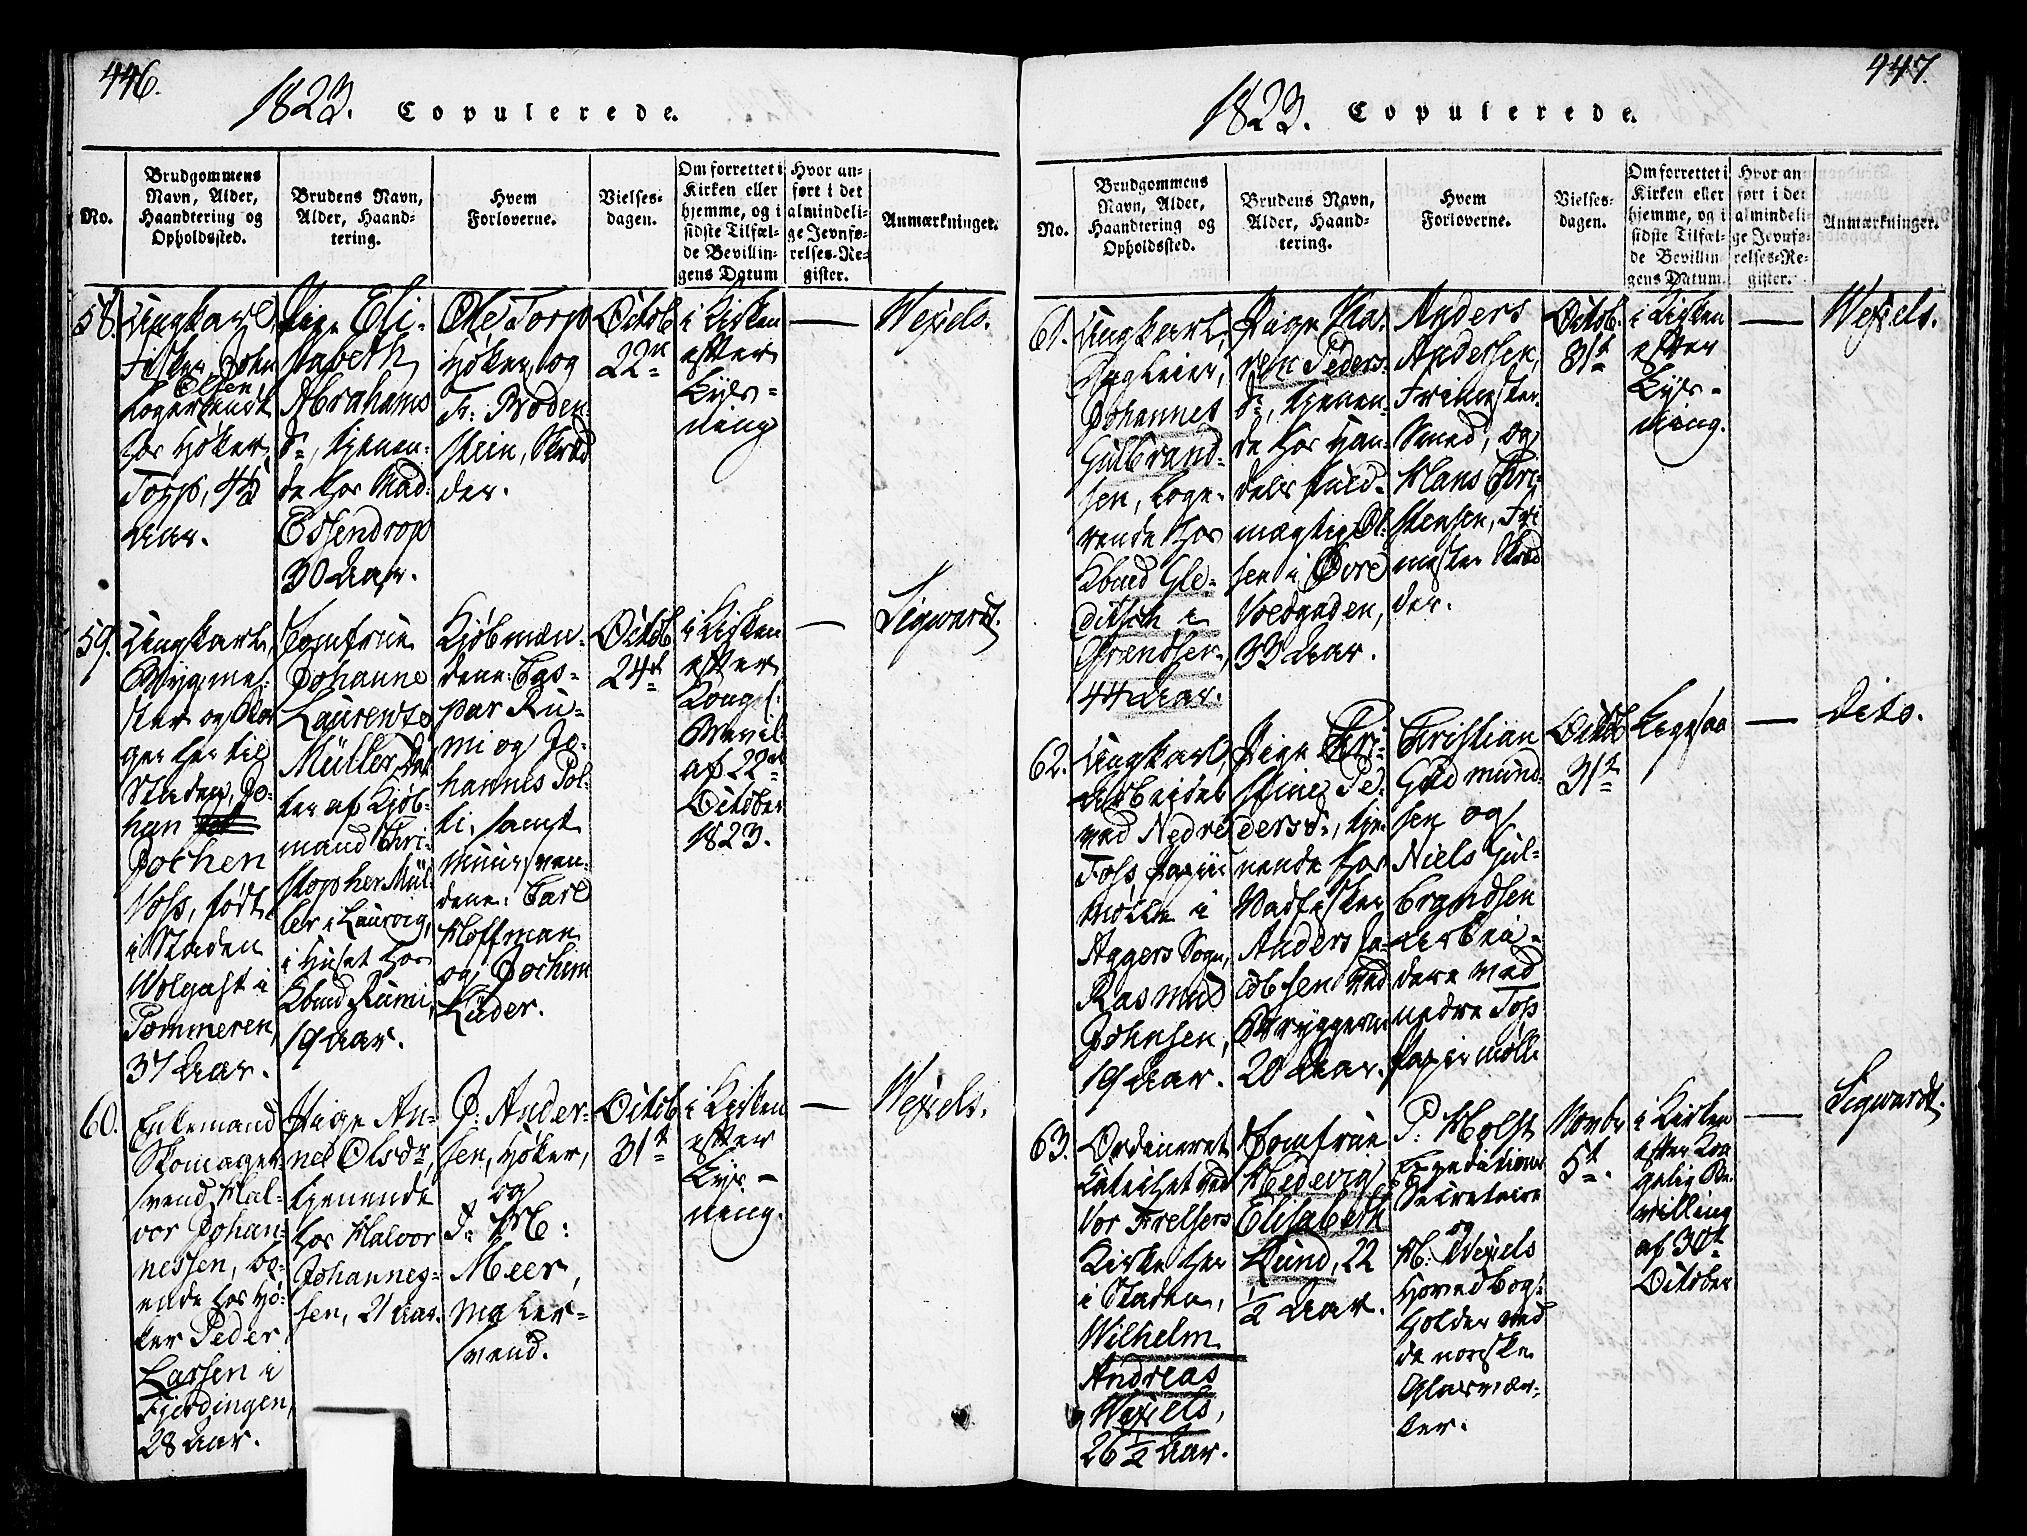 446.
1823. Copulerede.
No.
Brudgommens
Navn, Alder,
Haandtering og
Opholdssted.
Brudens Navn,
Alder, Haand-
tering.
Hvem
Forloverne.
Vielses-
dagen.
Om forrettet i
Kirken eller
hjemme, og i
sidste Tilfæl-
de Bevillin-
gens Datum
Hvor an-
ført i det
almindeli-
ge Jevnfø-
relses-Re-
gister.
Anmærkninger.
58.
Ungkarl
Fisker, John
Olsen,
logerende
hos Høker
Torp, 45
Aar.
Pige Eli-
sabeth
Abrahams
Dr, tjenen-
de hos Mad:
Essendrop
30 Aar.
Ole Torp
Høker, og
Fr: Boden-
stein, Skræd
der.
Octob
22de
i Kirken
efter
Lys-
ning
—
Wexels.
59.
Ungkarl,
Bygme-
ster og Bor
ger her til
Staden, Jo-
han
Jochen
Voss, født
i Staden
Wolgast i
Pommeren,
37 Aar.
Jomfrue
Johanne
Laurentze
Müller, Dat
ter af Kjøb-
mand Chri-
stopher Mül-
ler i Laurvig,
i Huset hos
Kbmd Rumi,
19 Aar.
Kjøbmæn-
dene: Cas-
par Ru-
mi og Jo-
hannes Pol-
ti, samt
Muursven-
dene: Carl
Hoffman
og Jochim
Lüder.
Octob
24de
i Kirken
efter
Kongel:
Bevil:
af 22de
October
1823.
—
Sigwardt.
60.
Enkemand
Skomager
svend Hal-
vor Johan-
nessen, bo-
ende hos Hø-
ker Peder
Larsen i
Fjerdingen,
28 Aar.
Pige An-
ne Olsdr,
tjenende
hos Halvor
Johannes-
sen, 21 Aar.
J: Ander-
sen, Høker,
og
J: H:
Meer,
Maler-
svend.
Octob
31te
i Kirken
efter
Lys-
ning.
—
Wexels.
447.
1823. Copulerede.
No.
Brudgommens
Navn, Alder,
Haandtering og
Opholdssted.
Brudens Navn,
Alder, Haand-
tering.
Hvem
Forloverne.
Vielses-
dagen.
Om forrettet i
Kirken eller
hjemme, og i
sidste Tilfæl-
de Bevillin-
gens Datum.
Hvor an-
ført i det
almindeli-
ge Jevnfø-
relses-Re-
gister.
Anmærkninger.
61.
Ungkarl,
Dagleier,
Johannes
Gulbrand-
sen, loge-
rende hos
Kbmd Gle-
ditsch i
Grændsen,
44 Aar.
Pige Ma-
ren Peders-
dr, tjenen-
de hos Han-
dels Fuld-
mægtig Ol-
sen i Øvre
Voldgaden,
33 Aar.
Anders
Andersen,
Frimester
Smed, og
Hans Chri-
stensen, Fri
mester Skræd
der.
Octob.
31te
i Kirken
efter
Lys-
ning.
—
Wexels.
62.
Ungkarl,
Arbeider
ved Nedre
Foss Papiir
Mølle i
Aggers Sogn,
Rasmus
Johnsen,
19 Aar.
Pige Chri-
stine Pe-
dersdr, tje-
nende hos
Anders Ja-
cobsen ved
Bryggerne
20 Aar.
Christian
Gudmund-
sen og
Niels Gul-
brandsen
Arbei-
dere ved
nedre Foss
Papiirmølle
Octob
31te
Ligesaa
—
Dito.
63.
Ordineret
Catechet ved
Vor Frelsers
Kirke her
i Staden,
Wilhelm
Andreas
Wexels,
26 1/2 Aar.
Jomfrue
Hedevig
Elisabeth
Lund, 22
1/2 Aar.
P: Holst
Expeditions
Secretaire
og
H: Wexels
Hovedbog-
holder ved
de norske
Glasvær-
ker.
Novbr
5te.
i Kirken
efter Kon
gelig Be-
villing
af 30te
October
—
Sigwardt.